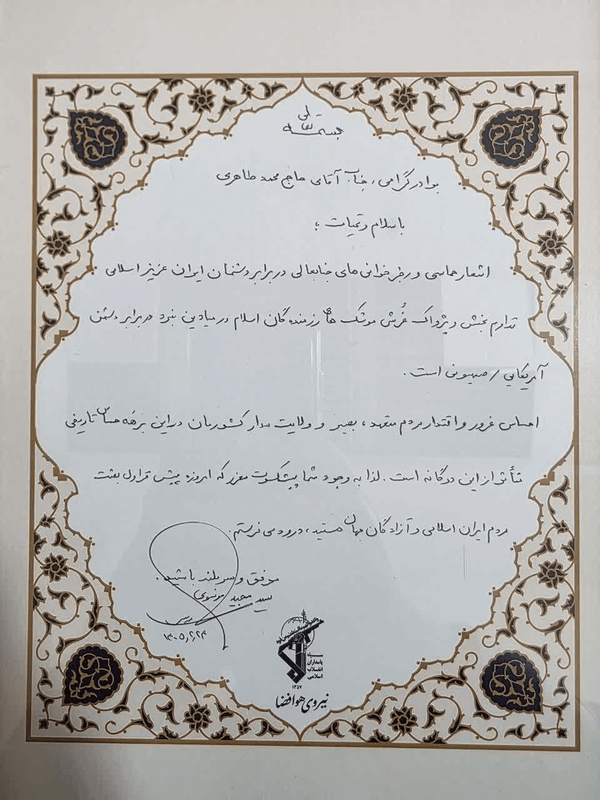 بسمه تعالی
برادر گرامی، جناب آقای حاج محمد طاهری
با سلام و تحیات ؛
اشعار حماسی و رجز خوانی های جنابعالی در برابر دشمنان ایران عزیز اسلامی
تداوم بخش و پژواک غُرش موشک های رزمنده گان اسلام در میادین نبرد در برابر دشمن
آمریکایی / صهیونی است .
احساس غرور و اقتدار مردم متعهد ، بصیر و ولایت مدار کشورمان در این برهه حساس تاریخی
متأثر از این دوگانه است . لذا به وجود شما پیشکسوت معزز که امروزه پیش قراول بعثت
مردم ایران اسلامی و آزادگان جهان هستید ، درود می فرستم .
موفق و سربلند باشید .
سید مجید موسوی
سپاه
پاسداران
انقلاب
اسلامی
۱۳۵۷
نیروی هوافضا